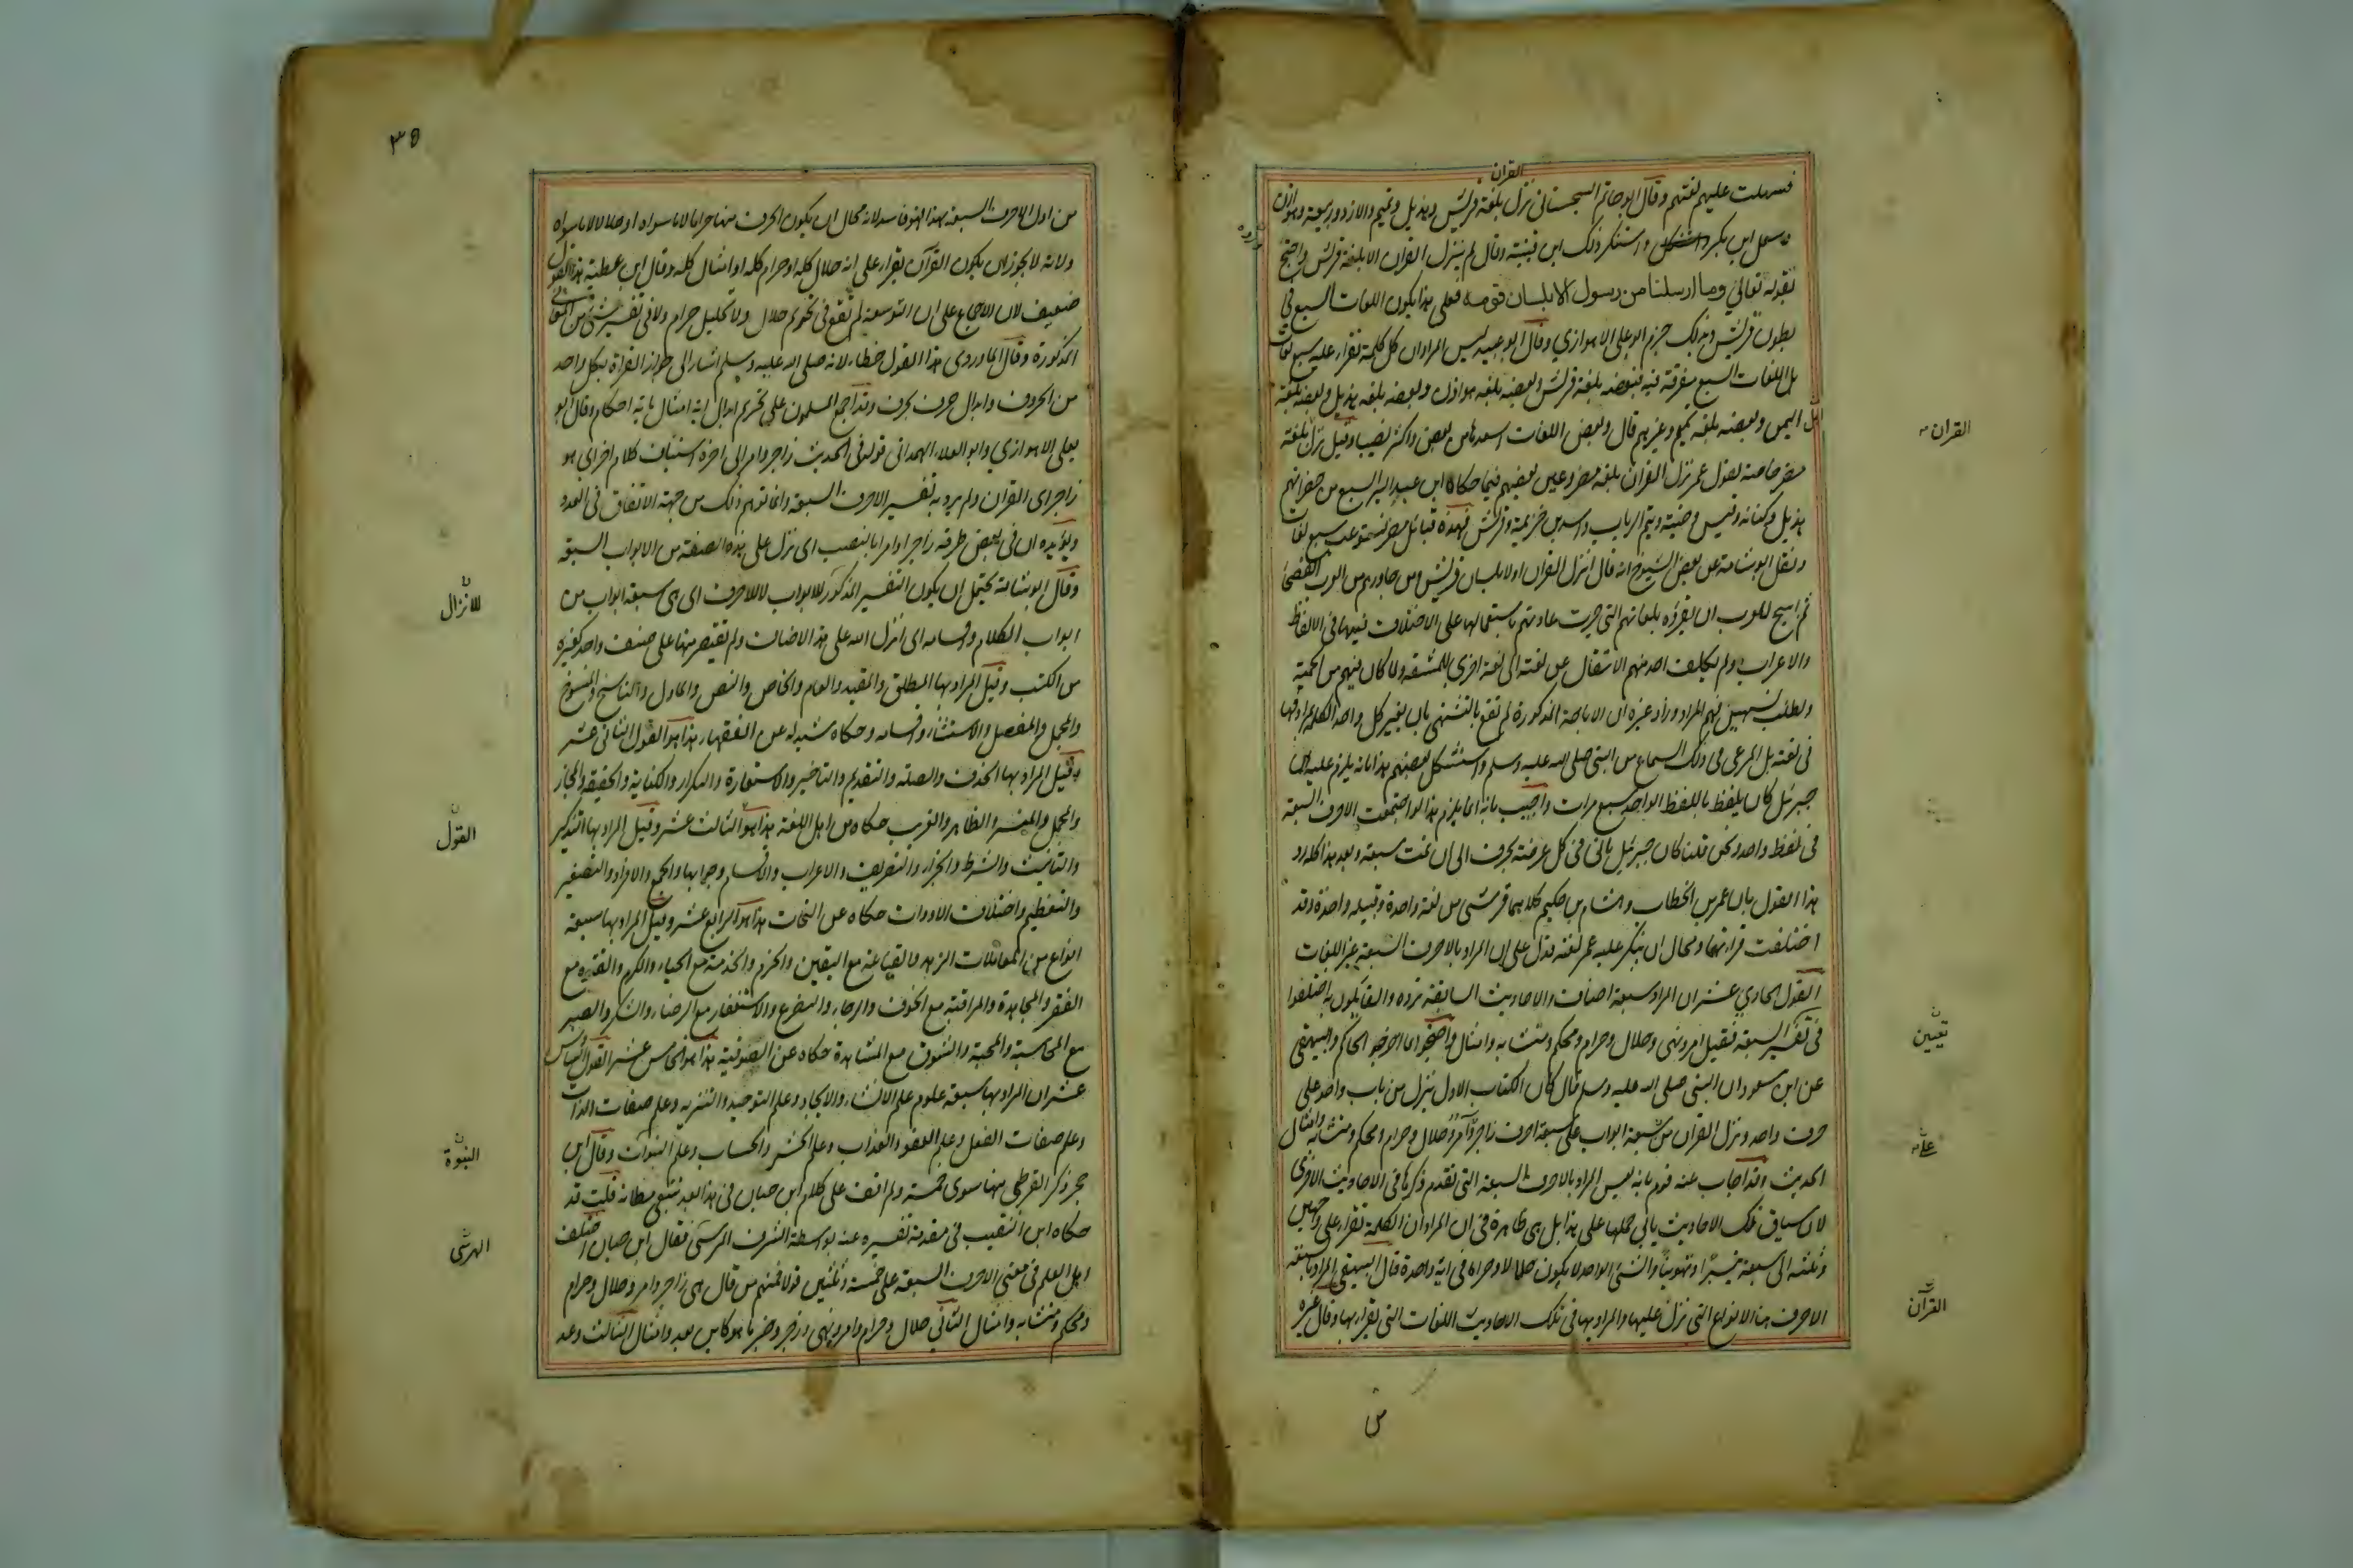 القران
فسهلت عليهم لغتهم وقال ابو حاتم السجستاني نزل بلغة قريش وهذيل وتميم والازد وربيعة وهوازن
وسعد ابن بكر واستنكر ذلك ابن قتيبة وقال لم ينزل القران الا بلغة قريش واحتج
بقوله تعالى وما ارسلنا من رسول الا بلسان قومه فعلى هذا يكون اللغات السبع في
بطون قريش وبذلك جزم ابو على الاهوازي وقال ابو عبيد ليس المراد ان كل كلمة تقراء على سبع لغات
بل اللغات السبع مفرقة فيه فبعضه بلغة قريش وبعضه بلغة هوازن وبعضه بلغة هذيل وبعضه بلغة
اهل اليمن وبعضه بلغة تميم وغيرهم قال وبعض اللغات اسعد بها من بعض واكثر نصيبا وقيل نزل بلغة
مضر خاصة لقول عمر نزل القران بلغة مضر وعين بعضهم فيما حكاه ابن عبد البر السبع من مضر انهم
هذيل وكنانة وقيس وضبة وتيم الرباب واسد بن خزيمة وقريش فهذه قبائل مضر تستوعب سبع لغات
ونقل ابو شامة عن بعض الشيوخ انه قال انزل القران اولا بلسان قريش ومن جاورهم من العرب الفصحا
ثم ابيح للعرب ان يقرؤه بلغاتهم التي جرت عادتهم باستعمالها على الاختلاف فيها في الالفاظ
والاعراب ولم يكلف احد منهم الانتقال عن لغته الى لغة اخرى للمشقة ولما كان فيهم من الحمية
ولطلب تسهيل فهم المراد وزاد غيره ان الاباحة المذكورة لم تقع بالتشهي بان يغير كل واحد الكلمة بمرادفها
في لغته بل المرعى في ذلك السماع من النبي صلى الله عليه وسلم واستشكل بعضهم هذا بانه يلزم عليه ان
جبرئيل كان يلفظ باللفظ الواحد سبع مرات واجيب بانه انما يلزم هذا لو اجتمعت الاحرف السبعة
في لفظ واحد ونحن قلنا كان جبرئيل ياتى في كل عرضة بحرف الى ان تمت سبعة وبعد هذا كله رد
هذا القول بان عمر بن الخطاب وهشام بن حكيم كلاهما قرشى من لغة واحدة وقبيلة واحدة وقد
اختلفت قراءتهما ومحال ان ينكر عليه عمر لغته فدل على ان المراد بالاحرف السبعة غير اللغات
القول الحادي عشر ان المراد سبعة اصناف والاحاديث السابقة ترده والقايلون به اختلفوا
في تعيين السبعة فقيل امر ونهى وحلال وحرام ومحكم ومتشابه وامثال واحتجوا بما اخرجه الحاكم والبيهقى
عن ابن مسعود ان النبي صلى الله عليه وسلم قال كان الكتاب الاول ينزل من باب واحد على
حرف واحد ونزل القران من سبعة ابواب على سبعة احرف زاجر وآمر وحلال وحرام ومحكم ومتشابه وامثال
الحديث وقد اجاب عنه قوم بانه ليس المراد بالاحرف السبعة التي تقدم ذكرها في الاحاديث الاخرى
لان سياق تلك الاحاديث يابى حملها على هذا بل هى ظاهرة في ان المراد ان الكلمة تقراء على وجهين
وثلثة الى سبعة تيسيرا وتهوينا والشئ الواحد لا يكون حلالا وحراما في اية واحدة قال البيهقي المراد بالسبعة
الاحرف هنا الانواع التي نزل عليها والمراد بها في تلك الاحاديث اللغات التي يقرا بها وقال غيره
القران
تعيين
على
القرآن
٣٥
من اول الاحرف السبعة بهذا فهو فاسد لانه محال ان يكون الحرف منها حراما لا ما سواه او حلالا لا ما سواه
ولانه لا يجوز ان يكون القرآن يقراء على انه حلال كله او حرام كله او امثال كله وقال ابن عطية هذا القول
ضعيف لان الاجماع على ان التوسعة لم تقع في تحريم حلال ولا تحليل حرام ولا في تغيير شئ من المعانى
المذكورة وقال الماوردى هذا القول خطاء لانه صلى الله عليه وسلم اشار الى جواز القراة بكل واحد
من الحروف وابدال حرف بحرف وقد اجمع المسلمون على تحريم ابدال اية امثال باية احكام وقال ابو
يعلى الاهوازي وابو العلاء الهمدانى قوله في الحديث زاجر وامر الى اخره استيناف كلام اخر اى هو
زاجر اى القران ولم يرد به تفسير الاحرف السبعة وانما توهم ذلك من جهة الاتفاق في العدد
ويؤيده ان في بعض طرقه زاجرا وامرا بالنصب اى نزل على هذه الصفة من الابواب السبعة
وقال ابو شامة يحتمل ان يكون التفسير المذكور للابواب لا للاحرف اى هى سبعة ابواب من
ابواب الكلام واقسامه اى انزل الله على هذه الاصناف ولم يقتصر منها على صنف واحد كغيره
من الكتب وقيل المراد بها المطلق والمقيد والعام والخاص والنص والماول والناسخ والمنسوخ
والمجمل والمفصل والاستثناء واقسامه وحكاه شيدله عن الفقهاء هذا هو القول الثانى عشر
وقيل المراد بها الحذف والصلة والتقديم والتاخير والاستعارة والتكرار والكناية والحقيقة والمجاز
والمجمل والمفسر والظاهر والغريب حكاه من اهل اللغة هذا هو الثالث عشر وقيل المراد بها التذكير
والتانيث والشرط والجزاء والتصريف والاعراب والاقسام وجوابها والجمع والافراد والتصغير
والتعظيم واختلاف الادوات حكاه عن النحات هذا هو الرابع عشر وقيل المراد بها سبعة
انواع من المعاملات الزهد والقناعة مع اليقين والحزم والخدمة مع الحياء والكرم والفتوة مع
الفقر والمجاهدة والمراقبة مع الخوف والرجاء والتضرع والاستغفار مع الرضاء والشكر والصبر
مع المحاسبة والمحبة والشوق مع المشاهدة حكاه عن الصوفية هذا هو الخامس عشر القول السادس
عشر ان المراد بها سبعة علوم علم الانشاء والايجاد وعلم التوحيد والتنزيه وعلم صفات الذات
وعلم صفات الفعل وعلم العفو والعذاب وعلم الحشر والحساب وعلم النبوات وقال ابن
حجر ذكر القرطبي منها سوى خمسة ولم اقف على كلام ابن حبان في هذا بعد تتبعى مظانه قلت قد
حكاه ابن النقيب في مقدمة تفسيره عنه بواسطة الشرف المرسى فقال ابن حبان اختلف
اهل العلم في معنى الاحرف السبعة على خمسة وثلثين قولا فمنهم من قال هى زاجر وامر وحلال وحرام
ومحكم ومتشابه وامثال الثاني حلال وحرام وامر ونهى وزجر وخبر ما هو كاين بعد وامثال الثالث وعد
للانزال
القول
النبوة